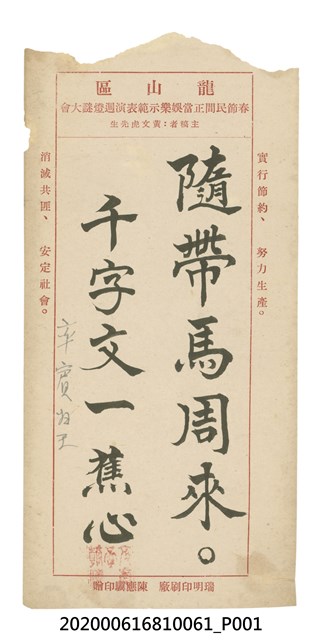 龍山區
春節民間正當娛樂示範表演迴燈謎大會
主稿者:黃文虎先生
實行節約、努力生產。
隨帶馬周來。
千字文一蕉心
率賓歸王
消滅共匪、安定社會。
瑞明印刷廠 陳應麟印贈
202000616810061_P001